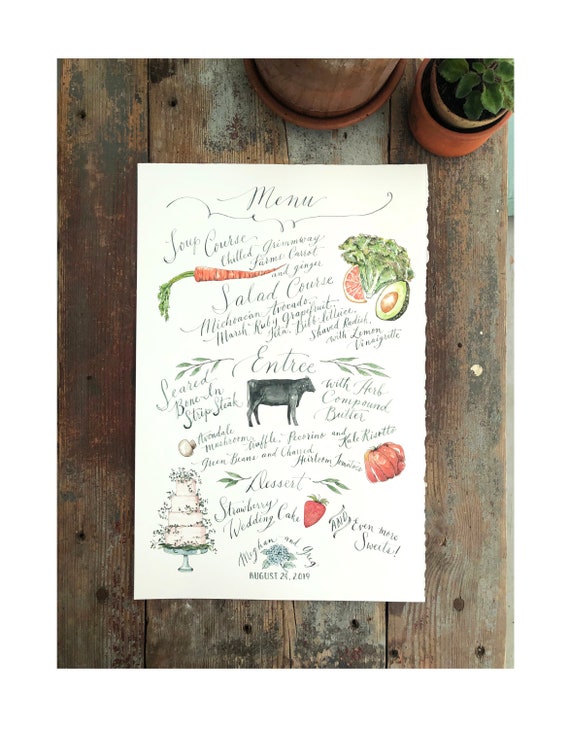 Menu
Soup Course
Chilled Grimmway
Farms Carrot
and ginger
Salad Course
Michoacan Avocado,
Marsh Ruby Grapefruit,
Feta, Bibb lettuce,
Shaved Radish,
with Lemon
Vinaigrette
Entree
Seared
Bone-In
Strip Steak
with Herb
Compound
Butter
Avondale
mushroom, Truffle, Pecorino and Kale Risotto
Green Beans and Charred
Heirloom Tomatoes
Dessert
Strawberry
Wedding Cake
AND Even more
Sweets!
Meghan and Greg
AUGUST 24, 2019